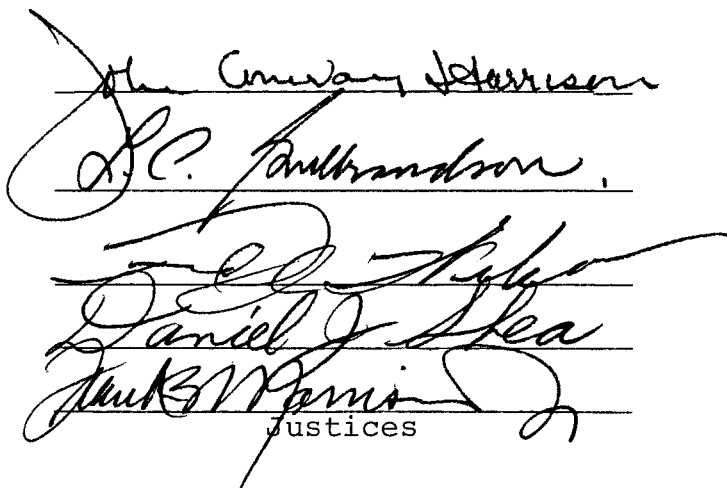 John Conway Harrison
L.C. Gulbrandson.
Daniel J. Shea
Frank B Morrison Jr
Justices